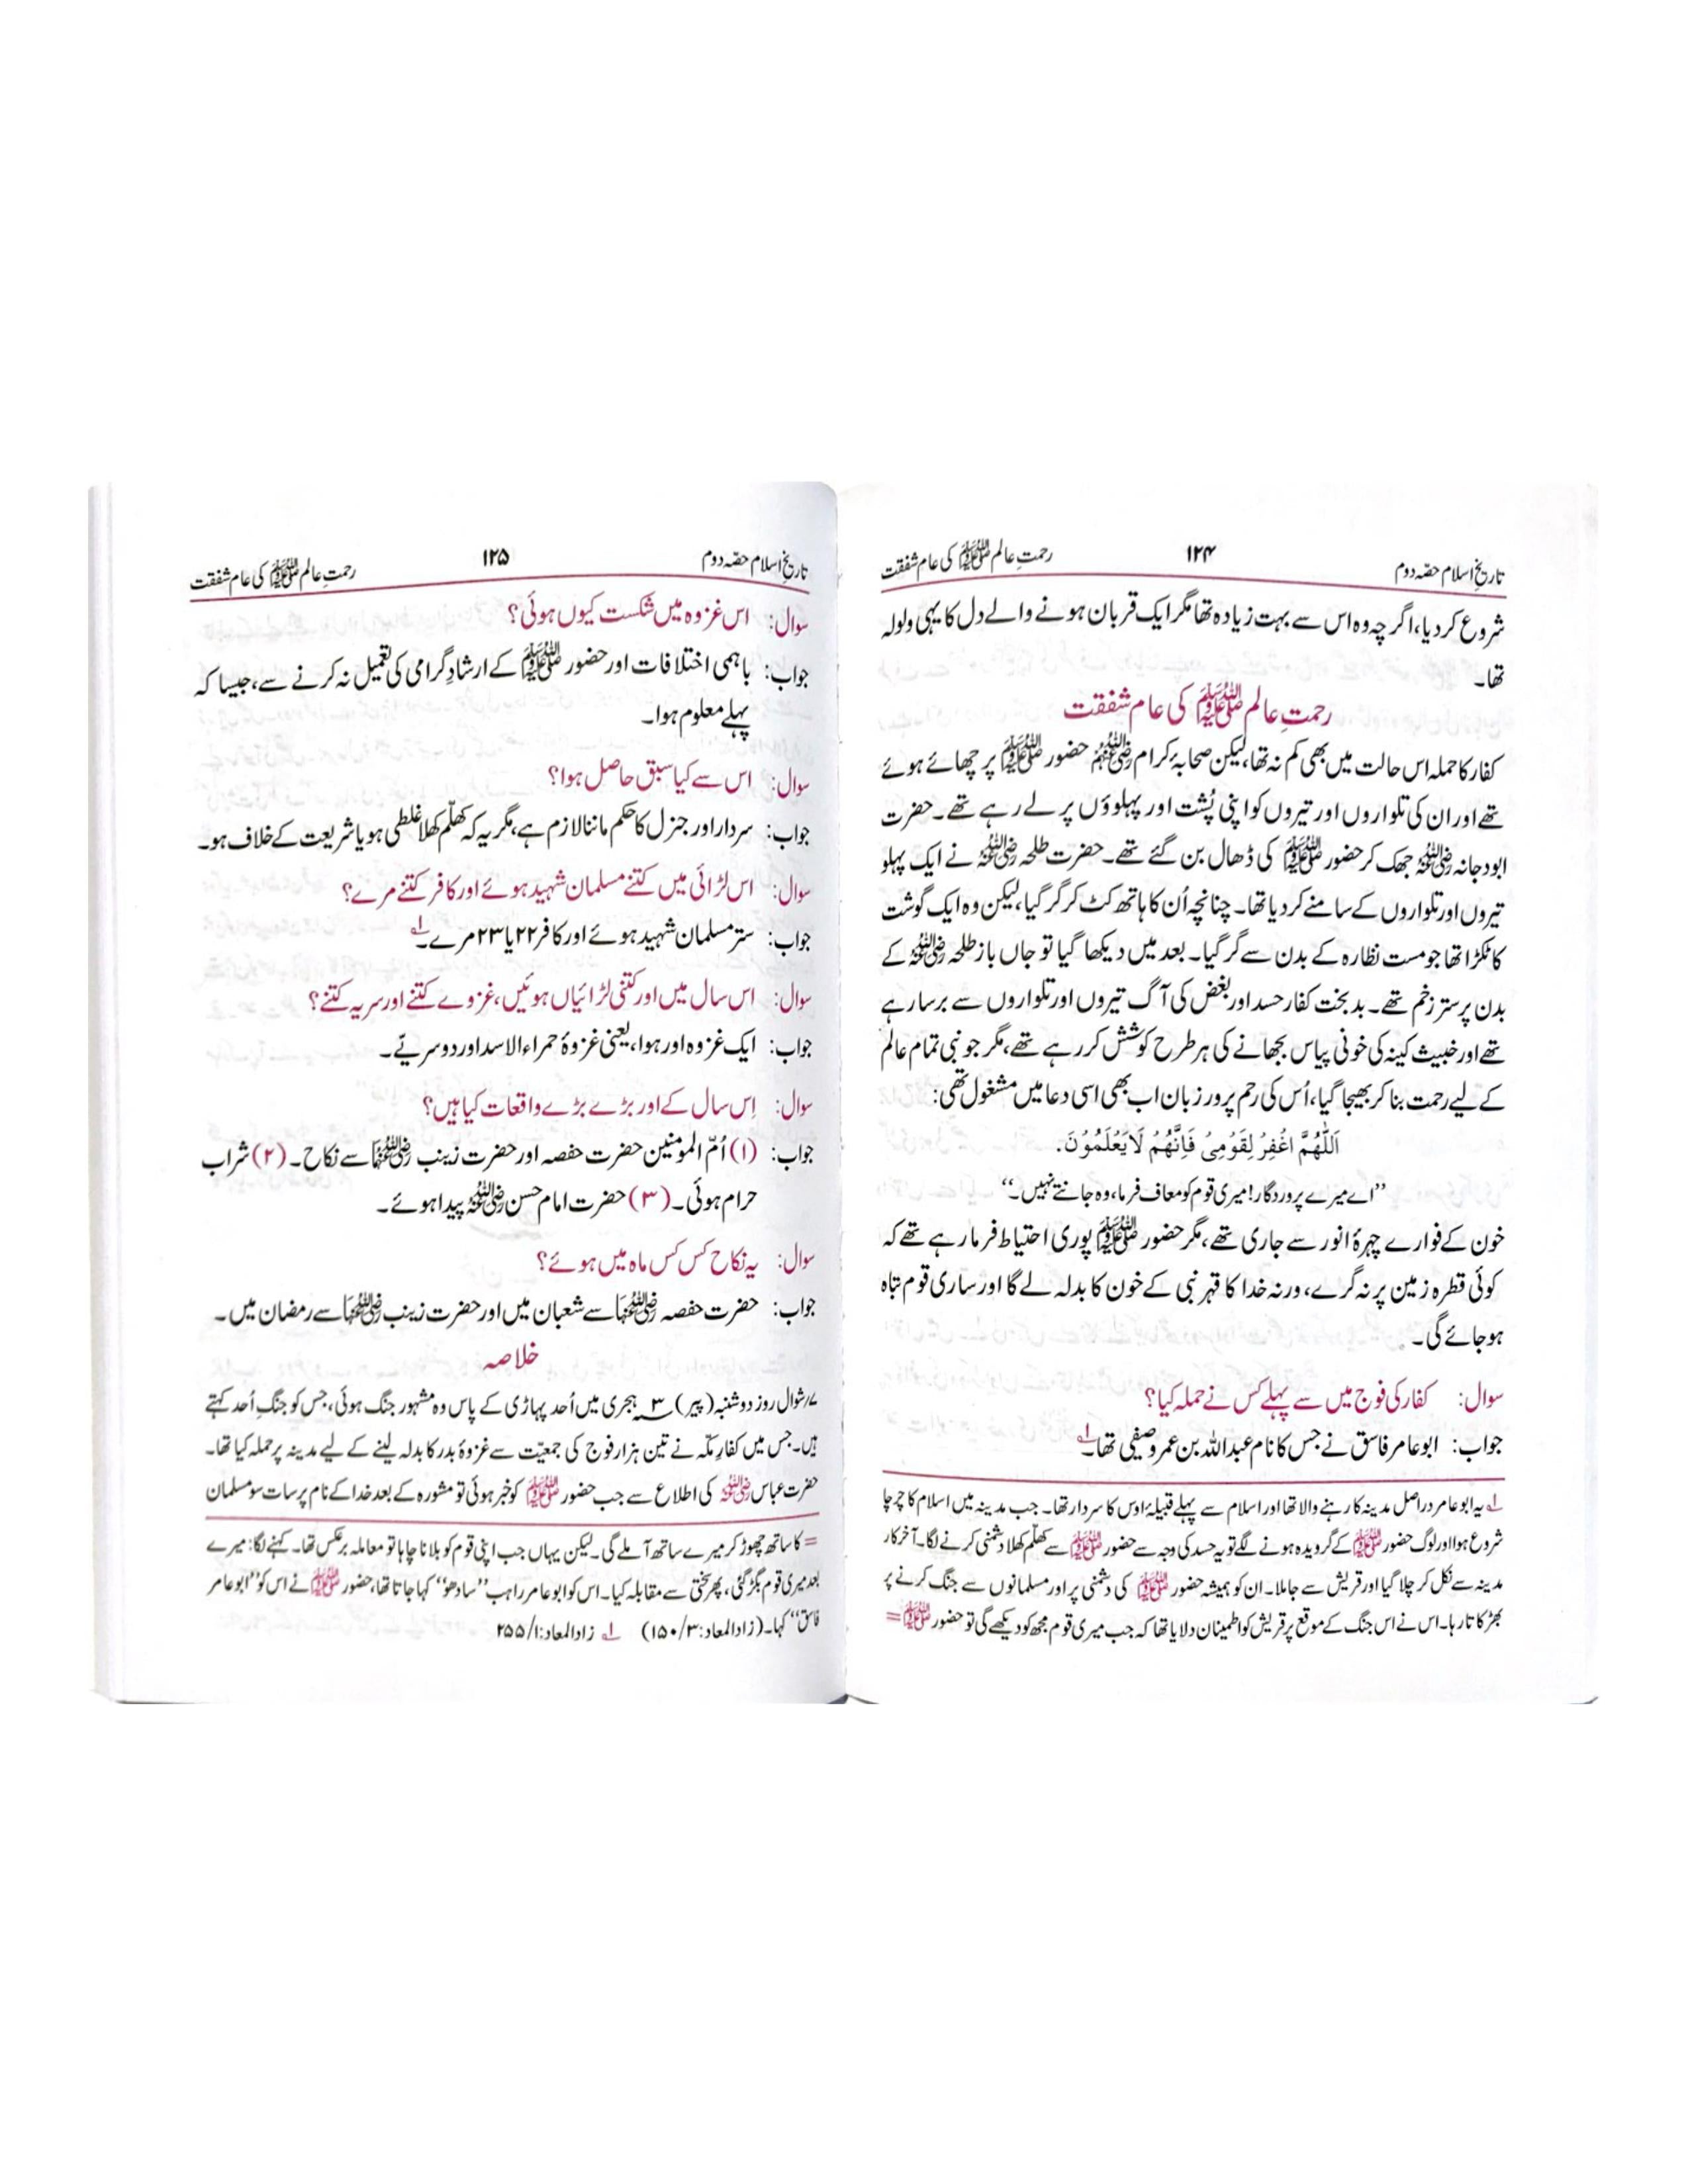 تاریخ اسلام حصّہ دوم ۱۲۴ رحمتِ عالم ﷺ کی عام شفقت
شروع کردیا، اگرچہ وہ اس سے بہت زیادہ تھا مگر ایک قربان ہونے والے دل کا یہی ولولہ
تھا۔
رحمتِ عالم ﷺ کی عام شفقت
کفار کا حملہ اس حالت میں بھی کم نہ تھا، لیکن صحابۂ کرام رضی اللہ عنہم حضور ﷺ پر چھائے ہوئے
تھے اور ان کی تلواروں اور تیروں کو اپنی پُشت اور پہلوؤں پر لے رہے تھے۔ حضرت
ابودجانہ رضی اللہ عنہ جھک کر حضور ﷺ کی ڈھال بن گئے تھے۔ حضرت طلحہ رضی اللہ عنہ نے ایک پہلو
تیروں اور تلواروں کے سامنے کردیا تھا۔ چنانچہ اُن کا ہاتھ کٹ کر گر گیا، لیکن وہ ایک گوشت
کا ٹکڑا تھا جو مست نظارہ کے بدن سے گر گیا۔ بعد میں دیکھا گیا تو جاں باز طلحہ رضی اللہ عنہ کے
بدن پر ستر زخم تھے۔ بد بخت کفار حسد اور بغض کی آگ تیروں اور تلواروں سے برسا رہے
تھے اور خبیث کینہ کی خونی پیاس بجھانے کی ہر طرح کوشش کر رہے تھے، مگر جو نبی تمام عالم
کے لیے رحمت بنا کر بھیجا گیا، اُس کی رحم پرور زبان اب بھی اسی دعا میں مشغول تھی:
اَللّٰهُمَّ اغْفِرْ لِقَوْمِیْ فَاِنَّهُمْ لَا یَعْلَمُوْنَ.
”اے میرے پروردگار! میری قوم کو معاف فرما، وہ جانتے نہیں۔“
خون کے فوارے چہرۂ انور سے جاری تھے، مگر حضور ﷺ پوری احتیاط فرما رہے تھے کہ
کوئی قطرہ زمین پر نہ گرے، ورنہ خدا کا قہر نبی کے خون کا بدلہ لے گا اور ساری قوم تباہ
ہو جائے گی۔
سوال: کفار کی فوج میں سے پہلے کس نے حملہ کیا؟
جواب: ابو عامر فاسق نے جس کا نام عبداللہ بن عمرو صیفی تھا۔ ۱؎
۱؎ یہ ابو عامر دراصل مدینہ کا رہنے والا تھا اور اسلام سے پہلے قبیلۂ اوس کا سردار تھا۔ جب مدینہ میں اسلام کا چرچا
شروع ہوا اور لوگ حضور ﷺ کے گرویدہ ہونے لگے تو یہ حسد کی وجہ سے حضور ﷺ سے کھلّم کھلا دشمنی کرنے لگا۔ آخرکار
مدینہ سے نکل کر چلا گیا اور قریش سے جا ملا۔ ان کو ہمیشہ حضور ﷺ کی دشمنی پر اور مسلمانوں سے جنگ کرنے پر
بھڑکاتا رہا۔ اس نے اس جنگ کے موقع پر قریش کو اطمینان دلایا تھا کہ جب میری قوم مجھ کو دیکھے گی تو حضور ﷺ =
تاریخ اسلام حصّہ دوم ۱۲۵ رحمتِ عالم ﷺ کی عام شفقت
سوال: اس غزوہ میں شکست کیوں ہوئی؟
جواب: باہمی اختلافات اور حضور ﷺ کے ارشادِ گرامی کی تعمیل نہ کرنے سے، جیسا کہ
پہلے معلوم ہوا۔
سوال: اس سے کیا سبق حاصل ہوا؟
جواب: سردار اور جنرل کا حکم ماننا لازم ہے، مگر یہ کہ کھلّم کھلا غلطی ہو یا شریعت کے خلاف ہو۔
سوال: اس لڑائی میں کتنے مسلمان شہید ہوئے اور کافر کتنے مرے؟
جواب: ستر مسلمان شہید ہوئے اور کافر ۲۲ یا ۲۳ مرے۔ ۱؎
سوال: اس سال میں اور کتنی لڑائیاں ہوئیں، غزوے کتنے اور سریہ کتنے؟
جواب: ایک غزوہ اور ہوا، یعنی غزوۂ حمراء الاسد اور دو سریّے۔
سوال: اِس سال کے اور بڑے بڑے واقعات کیا ہیں؟
جواب: (۱) اُمّ المومنین حضرت حفصہ اور حضرت زینب رضی اللہ عنہما سے نکاح۔ (۲) شراب
حرام ہوئی۔ (۳) حضرت امام حسن رضی اللہ عنہ پیدا ہوئے۔
سوال: یہ نکاح کس کس ماہ میں ہوئے؟
جواب: حضرت حفصہ رضی اللہ عنہا سے شعبان میں اور حضرت زینب رضی اللہ عنہا سے رمضان میں۔
خلاصہ
۷؍ شوال روز دوشنبہ (پیر) ۳ ہجری میں اُحد پہاڑی کے پاس وہ مشہور جنگ ہوئی، جس کو جنگِ اُحد کہتے
ہیں۔ جس میں کفارِ مکّہ نے تین ہزار فوج کی جمعیّت سے غزوۂ بدر کا بدلہ لینے کے لیے مدینہ پر حملہ کیا تھا۔
حضرت عباس رضی اللہ عنہ کی اطلاع سے جب حضور ﷺ کو خبر ہوئی تو مشورہ کے بعد خدا کے نام پر سات سو مسلمان
= کا ساتھ چھوڑ کر میرے ساتھ آملے گی۔ لیکن یہاں جب اپنی قوم کو بلانا چاہا تو معاملہ برعکس تھا۔ کہنے لگا: میرے
بعد میری قوم بگڑ گئی، پھر سختی سے مقابلہ کیا۔ اس کو ابو عامر راہب ”سادھو“ کہا جاتا تھا، حضور ﷺ نے اس کو ”ابو عامر
فاسق“ کہا۔ (زاد المعاد: ۳/۱۵۰) ۱؎ زاد المعاد: ۱/۲۵۵